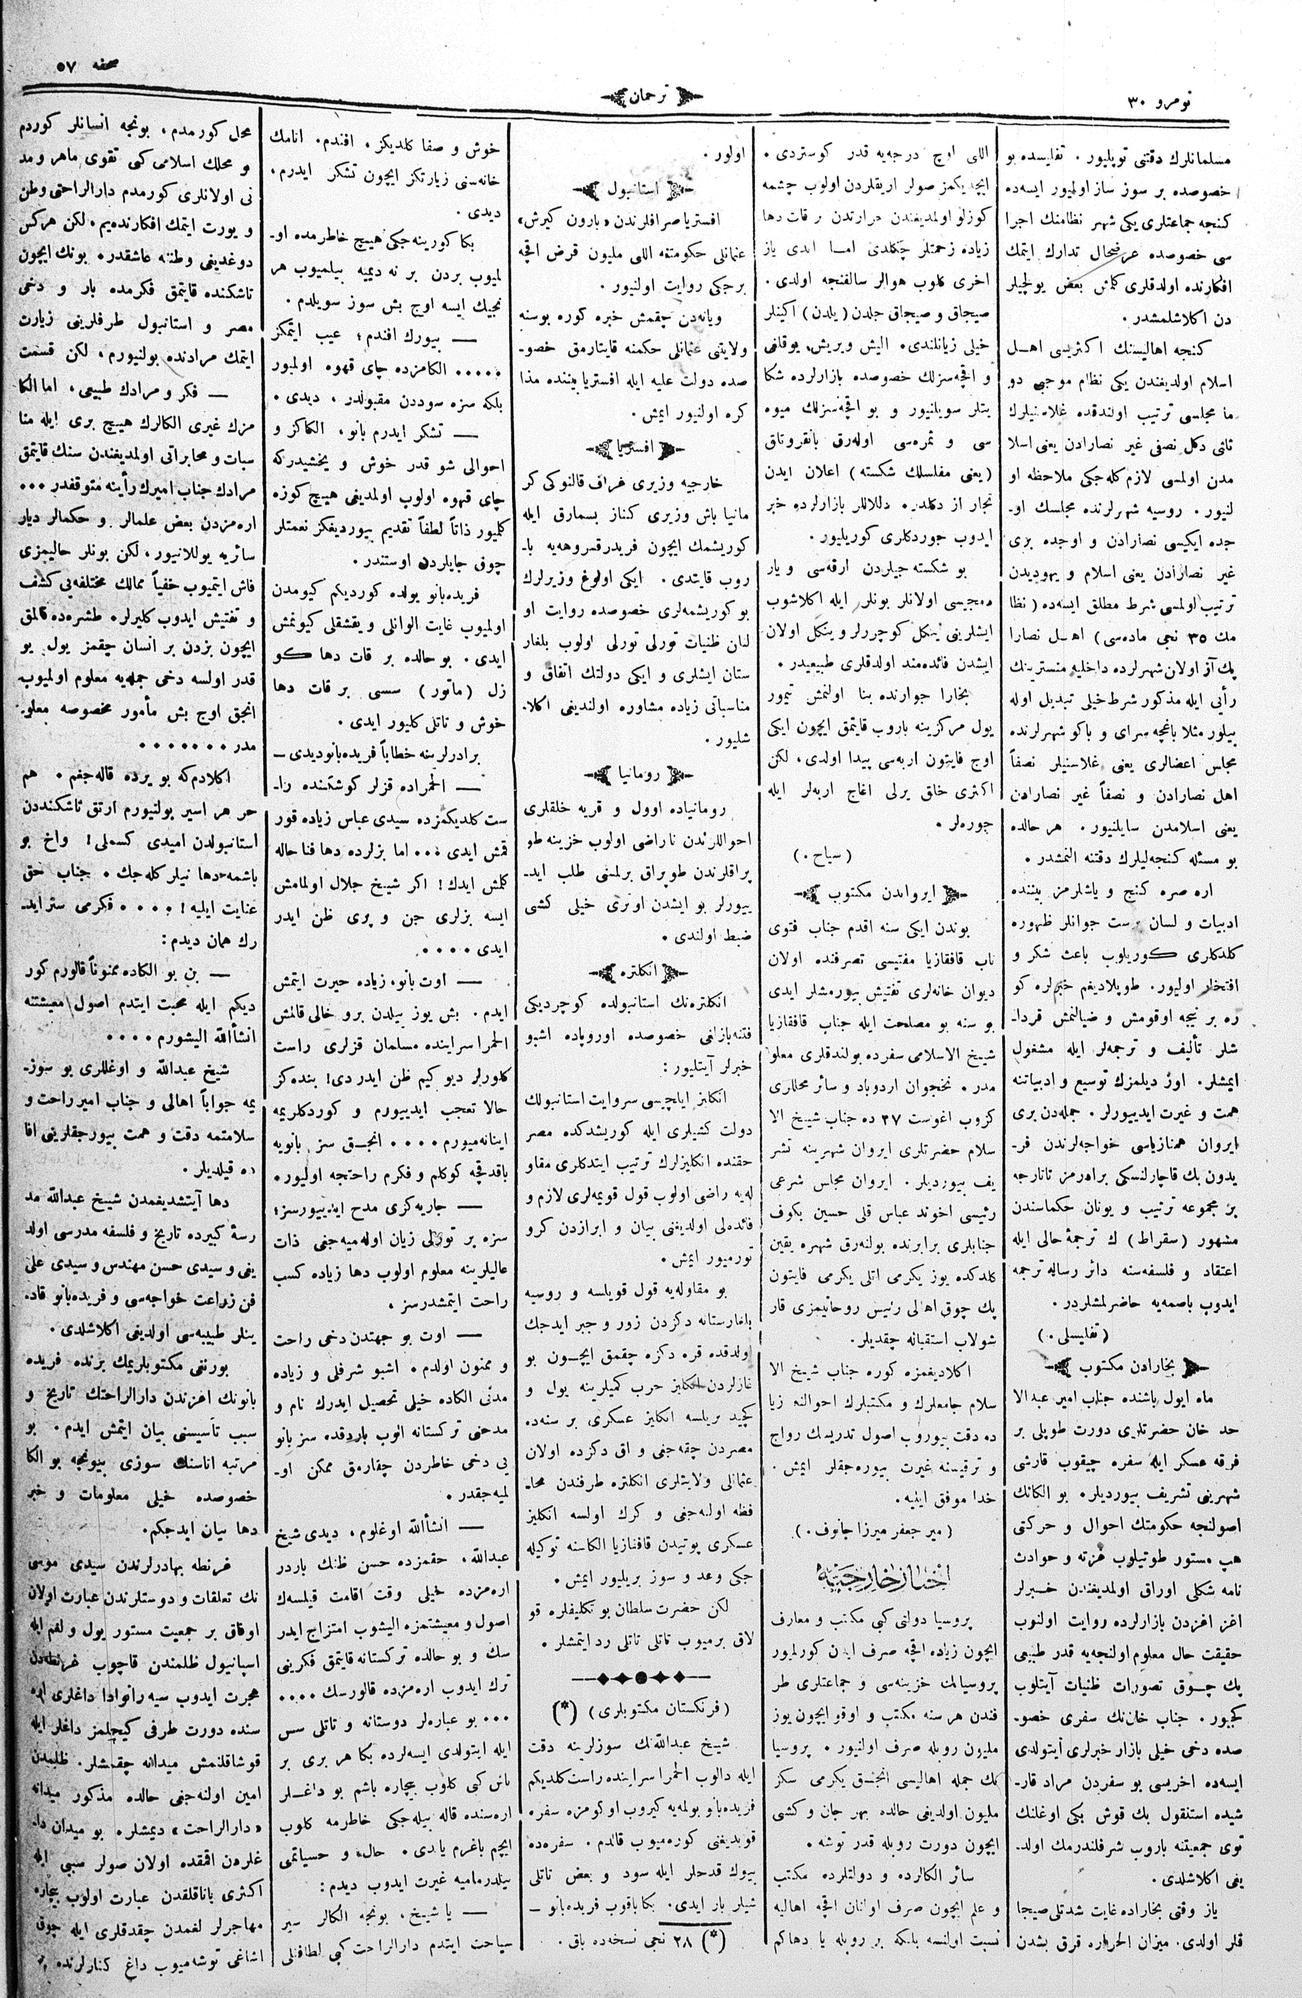 نومرو ۳۰
ترجمان
صحفه ۵۷
مسلمانلرك دقتنی توپلیور. تفلیسده بو
خصوصده بر سوز ساز اولمیور ایسه‌ده
كنجه جماعتلری یكی شهر نظامنك اجرا
سی خصوصده عرضحال تدارك ایتمك
افكارنده اولدقلری كلمش بعض یولچیلر
دن اكلاشلمشدر.
كنجه اهالیسنك اكثریسی اهل
اسلام اولدیغندن یكی نظام موجبی دو
ما مجلسی ترتیب اولندقده غلاسنیلرك
ثانی دكل نصفی غیر نصارادن یعنی اسلا
مدن اولمسی لازم كله‌جكی ملاحظه او
لنیور. روسیه شهرلرنده مجلسك او-
جده ایكیسی نصارادن و اوجده بری
غیر نصارادن یعنی اسلام و یهودیدن
ترتیب اولمسی شرط مطلق ایسه‌ده (نظا
مك ۳۵ نجی ماده‌سی) اهل نصارا
پك آز اولان شهرلرده داخلیه منسترینك
رأیی ایله مذكور شرط خیلی تبدیل اوله
بیلور مثلا باغچه سرای و باكو شهرلرنده
مجلس اعضالری یعنی غلاسنیلر نصفاً
اهل نصارادن و نصفاً غیر نصارادن
یعنی اسلامدن سایلنیور. هر حالده
بو مسئله كنجه‌لیلرك دقتنه التمشدر.
اره صره كنج و یاشلرمز بیننده
ادبیات و لسان پرست جوانلر ظهوره
كلدكلری كوریلوب باعث شكر و
افتخار اولیور. طوپلادیغم خبرلره كو
ره بر نیجه اوقومش و ضیالنمش قردا-
شلر تألیف و ترجمه‌لر ایله مشغول
ایمشلر. اوز دیلمزك توسیع و ادبیاتنه
همت و غیرت ایدییورلر. جمله‌دن بری
ایروان همنازیاسی خواجه‌لرندن فر-
یدون بك قاجارلنسكی برادرمز تاتارجه
بر مجموعه ترتیب و یونان حكماسندن
مشهور (سقراط) ك ترجمهٔ حالی ایله
اعتقاد و فلسفه‌سنه دائر رساله ترجمه
ایدوب باصمه‌یه حاضرلمشلردر.
(تفلیسلی.)
بخارادن مكتوب
ماه ایول باشنده جناب امیر عبدالا
حد خان حضرتلری دورت طوپلی بر
فرقه عسكر ایله سفره چیقوب قارشی
شهرینی تشریف بیوردیلر. بو الكانك
اصولنجه حكومتك احوال و حركتی
هپ مستور طوتیلوب غزته و حوادث
نامه شكلی اوراق اولمدیغندن خبرلر
اغز اغزدن بازارلرده روایت اولنوب
حقیقت حال معلوم اولنجه‌یه قدر طبیعی
پك چوق تصورات ظنیات آیتلوب
كجیور. جناب خان‌نك سفری خصو-
صده دخی خیلی بازار خبرلری آیتولدی
ایسه‌ده اخریسی بو سفردن مراد قار-
شیده استنقول بك قوش بكی اوغلنك
توی جمعیتنه باروب شرفلندرمك اولد-
یغی اكلاشلدی.
یاز وقتی بخاراده غایت شدتلی صیجا
قلر اولدی. میزان الحراره قرق بشدن
اللی اوچ درجه‌یه قدر كوستردی.
ایچدیكمز صولر اریقلردن اولوب چشمه
كوزلو اولمدیغندن حرارتدن بر قات دها
زیاده زحمتلر چكلدی اما ایدی یاز
اخری كلوب هوالر سالفنجه اولدی.
صیجاق و صیجاق جلدن (یلدن) اكینلر
خیلی زیانلندی. الیش ویریش، یوقانی
و اقچه‌سزلك خصوصده بازارلرده شكا
یتلر سویلنیور و بو اقچه‌سزلك میوه
سی و ثمره‌سی اوله‌رق بانقروتاق
(یعنی مفلسلك شكسته) اعلان ایدن
تجار از دكلدر. دلاللر بازارلرده خبر
ایدوب جوردكلری كوریلیور.
بو شكسته جیلردن ارقه‌سی و یار
دمجیسی اولانلر بونلر ایله اكلاشوب
ایشلرینی ینكل كوچررلر و ینكل اولان
ایشدن فائده‌مند اولدقلری طبیعیدر.
بخارا جوارنده بنا اولنمش تیمور
یول مركزینه باروب قایتمق ایچون ایكی
اوچ فایتون اربه‌سی پیدا اولدی، لكن
اكثری خلق یرلی اغاج اربه‌لر ایله
جوره‌لر.
(سیاح.)
ایرواندن مكتوب
بوندن ایكی سنه اقدم جناب فتوی
ناب قافقازیا مفتیسی تصرفنده اولان
دیوان خانه‌لری تفتیش بیورمشلر ایدی
بو سنه بو مصلحت ایله جناب قافقازیا
شیخ الاسلامی سفرده بولندقلری معلو
مدر. نخجوان اردوباد و سائر محللری
كزوب اغوست ۲۷ ده جناب شیخ الا
سلام حضرتلری ایروان شهرینه تشر
یف بیوردیلر. ایروان مجلس شرعی
رئیسی اخوند عباس قلی حسین بكوف
جنابلری برابرنده بولنه‌رق شهره یقین
كلدكده یوز یكرمی اتلی یكرمی فایتون
پك چوق اهالی رئیس روحانیمزی قار
شولاب استقباله چقدیلر.
اكلادیغمزه كوره جناب شیخ الا
سلام جامعلرك و مكتبلرك احوالنه زیا
ده دقت بیوروب اصول تدریسك رواج
و ترقیسنه غیرت بیوره‌جقلر ایمش.
خدا موفق ایلیه.
(میر جعفر میرزا جانوف.)
اخبار خارجیّه
پروسیا دولتی كبی مكتب و معارف
ایچون زیاده اقچه صرف ایدن كورلمیور
پروسیانك خزینه‌سی و جماعتلری طر
فندن هر سنه مكتب و اوقو ایچون یوز
ملیون روبله صرف اولنیور. پروسیا
نك جمله اهالیسی انجق یكرمی سكز
ملیون اولدیغی حالده بهر جان و كشی
ایچون دورت روبله قدر توشه.
سائر الكالرده و دولتلرده مكتب
و علم ایچون صرف اولنان اقچه اهالیه
نسبت اولنسه بلكه بر روبله یا دها كم
اولور.
استانبول
افستریا صرافلرندن «بارون كیرش»
عثمانلی حكومتنه اللی ملیون قرض اقچه
برجكی روایت اولنیور.
ویانه‌دن چقمش خبره كوره بوسنه
ولایتی عثمانلی حكمنه قایتارمق خصو-
صده دولت علیه ایله افستریا بیننده مذا
كره اولنیور ایمش.
افستریا
خارجیه وزیری غراف قالنوكی كر
مانیا باش وزیری كناز بسمارق ایله
كوریشمك ایچون فریدرقسروهه‌یه با-
روب قایتدی. ایكی اولوغ وزیرلرك
بو كوریشمه‌لری خصوصده روایت او
لنان ظنیات تورلی تورلی اولوب بلغار
ستان ایشلری و ایكی دولتك اتفاق و
مناسباتی زیاده مشاوره اولندیغی اكلا-
شلیور.
رومانیا
رومانیاده اوول و قریه خلقلری
احواللرندن ناراضی اولوب خزینه طو
پراقلرندن طوپراق برلمنی طلب اید-
ییورلر بو ایشدن اوتری خیلی كشی
ضبط اولندی.
انكلتره
انكلتره‌نك استانبولده كوچردیكی
فتنه‌بازلغی خصوصده اوروپاده اشبو
خبرلر آیتلیور:
انكلیز ایلچیسی سر وایت استانبولك
دولت كشیلری ایله كوریشدكده مصر
حقنده انكلیزلرك ترتیب ایتدكلری مقاو
له‌یه راضی اولوب قول قویمه‌لری لازم و
فائده‌لی اولدیغنی بیان و ابرازدن كرو
تورمیور ایمش.
بو مقاوله‌یه قول قویلسه و روسیه
باغارستانه دكزدن زور و جبر ایدجك
اولدقده قره دكزه چقمق ایچون بو
غازلردن انكلیز حرب كمیلرینه یول و
كچید بریلسه انكلیز عسكری بر سنه‌ده
مصردن چقه‌جغی و اق دكزده اولان
عثمانلی ولایتلری انكلتره طرفندن محا-
فظه اوله‌جغی و كرك اولسه انكلیز
عسكری پوتیدن قافقازیا الكاسنه توكیله
جكی وعد و سوز بریلیور ایمش.
لكن حضرت سلطان بو تكلیفلره قو
لاق برمیوب تاتلی تاتلی رد ایتمشلر.
(فرنكستان مكتوبلری) (*)
شیخ عبدالله‌نك سوزلرینه دقت
ایله دالوب الحمرا سراینده راست كلدیكم
فریده‌بانو بولمه‌یه كیروب اوكومزه سفره
قویدیغنی كوره‌میوب قالدم. سفره‌ده
بیوك قدحلر ایله سود و بعض تاتلی
شیلر بار ایدی. بكا باقوب فریده‌بانو —
(*) ۲۸ نجی نسخه‌ده باق.
خوش و صفا كلدیكز. افندم. انامك
خانه‌سنی زیارتكز ایچون تشكر ایدرم.
دیدی.
بكا كورینه‌جكی هیچ خاطرمده او-
لمیوب بردن بر نه دیمیه بیلمیوب هر
نجیك ایسه اوچ بش سوز سویلدم.
— بیورك افندم؛ عیب ایتمكز
..... الكامزده چای قهوه اولمیور
بلكه سزه سوددن مقبولدر، دیدی.
— تشكر ایدرم بانو. الكاكز و
احوالی شو قدر خوش و یخشیدركه
چای قهوه اولوب اولمدیغی هیچ كوزه
كلمیور ذاتاً لطفاً تقدیم بیوردیغكز نعمتلر
چوق جایلردن اوستندر.
فریده‌بانو یولده كوردیكم كیومدن
اولمیوب غایت الوانلی و یقشقلی كیونمش
ایدی. بو حالده بر قات دها كو
زل (ماتور) سسی بر قات دها
خوش و تاتلی كلیور ایدی.
برادرلرینه خطاباً فریده‌بانو دیدی —
— الحمراده قزلر كوشكنده را-
ست كلدیكمزده سیدی عباس زیاده قور
قمش ایدی ... اما بزلرده دها فنا حاله
كلمش ایدك! اكر شیخ جلال اولمامش
ایسه بزلری جن و پری ظن ایدر
ایدی ....
— اوت بانو، زیاده حیرت ایتمش
ایدم. بش یوز ییلدن برو خالی قالمش
الحمرا سراینده مسلمان قزلری راست
كلورلر دیو كیم ظن ایدر دی! بنده كز
حالا تعجب ایدییورم و كوردكلریمه
اینانه‌میورم .... انجق سز بانویه
باقدقچه كوكلم و فكرم راحتجه اولیور.
— جاریه‌كزی مدح ایدییورسز؛
سزه بر تورلی زیان اوله‌میه‌جغی ذات
عالیلرینه معلوم اولوب دها زیاده كسب
راحت ایتمشدرسز.
— اوت بو جهتدن دخی راحت
و ممنون اولدم. اشبو شرفلی و زیاده
مدنی الكاده خیلی تحصیل ایدرك نام و
مدحنی تركستانه الوب باردقده سز بانو
یی دخی خاطردن چقارمق ممكن او-
لمیه‌جقدر.
— انشأالله اوغلوم، دیدی شیخ
عبدالله، حقمزده حسن ظنك باردر
اره‌مزده خیلی وقت اقامت قیلسه‌ك
اصول و معیشتمزه الیشوب امتزاج ایدر
سك و بو حالده تركستانه قایتمق فكرینی
ترك ایدوب اره‌مزده قالورسك ....
... بو عباره‌لر دوستانه و تاتلی سس
ایله ایتولدی ایسه‌لرده بكا هر بری بر
تاش كبی كلوب بیچاره باشم بو داغلر
اره‌سنده قاله بیله‌جكی خاطرمه كلوب
ایچم باغرم یاندی. حال و حسیاتمی
بیلدرمامیه غیرت ایدوب دیدم:
— یا شیخ، بونجه الكالر سیر
سیاحت ایتدم دارالراحت كبی لطافتلی
محل كورمدم، بونجه انسانلر كوردم
و محلك اسلامی كبی تقوی ماهر و مد
نی اولانلری كورمدم دارالراحتی وطن
و یورت ایتمك افكارنده‌یم، لكن هر كس
دوغدیغی وطننه عاشقدر. بونك ایچون
تاشكنده قایتمق فكرمده بار و دخی
مصر و استانبول طرفلرینی زیارت
ایتمك مرادنده بولنیورم. لكن قسمت
— فكر و مرادك طبیعی. اما الكا
مزك غیری الكالرك هیچ بری ایله منا
سبات و مخابراتی اولمدیغندن سنك قایتمق
مرادك جناب امیرك رأینه متوقفدر ...
اره‌مزدن بعض علمالر و حكمالر دیار
سائریه یوللانیور، لكن بونلر حالیمزی
فاش ایتمیوب خفیاً ممالك مختلفه‌یی كشف
و تفتیش ایدوب كلیرلر. طشره‌ده قالمق
ایچون بزدن بر انسان چقمز یول بو
قدر اولسه دخی جمله‌یه معلوم اولمیوب
انجق اوچ بش مأمور مخصوصه معلو-
مدر .......
اكلادم‌كه بو یرده قاله‌جغم. هم
حر هم اسیر بولنیورم ارتق تاشكنددن
استانبولدن امیدی كسملی! واخ بو
باشمه دها نیلر كله‌جك. جناب حق
عنایت ایلیه! .... فكرمی ستر اید-
رك همان دیدم:
— بن بو الكاده ممنوناً قالورم كور
دیكم ایله محبت ایتدم اصول معیشتنه
انشأالله الیشورم ....
شیخ عبدالله و اوغللری بو سوز-
یمه جواباً اهالی و جناب امیر راحت و
سلامتمه دقت و همت بیورجقلرینی افا
ده قیلدیلر.
دها آیتشدیغمدن شیخ عبدالله مد
رسهٔ كبیرده تاریخ و فلسفه مدرسی اولد
یغی و سیدی حسن مهندس و سیدی علی
فن زراعت خواجه‌سی و فریده‌بانو قاد-
ینلر طبیبه‌سی اولدیغی اكلاشلدی.
بورنغی مكتوبلریمك برنده فریده
بانونك اغزندن دارالراحتك تاریخ و
سبب تأسیسنی بیان ایتمش ایدم. بو
مرتبه اناسنك سوزی بیونجه بو الكا
خصوصده خیلی معلومات و خبر
دها بیان ایدجكم.
غرنطه بهادرلرندن سیدی موسی
نك تعلقات و دوستلرندن عبارت اولان
اوفاق بر جمعیت مستور یول و لغم ایله
اسپانیول ظلمندن قاچوب غرنطه‌دن
هجرت ایدوب سیه رانوادا داغلری اره
سنده دورت طرفی كیچلمز داغلر ایله
قوشاقلنمش میدانه چقمشلر. ظلمدن
امین اولنه‌جغی حالده مذكور میدانه
«دارالراحت» دیمشلر. بو میدان دا-
غلردن اقمقده اولان صولر سببی ایله
اكثری باتاقلقدن عبارت اولوب بیچاره
مهاجرلر لغمدن چقدقلری ایله چوق
اشاغی توشه‌میوب داغ كنارلرنده بر